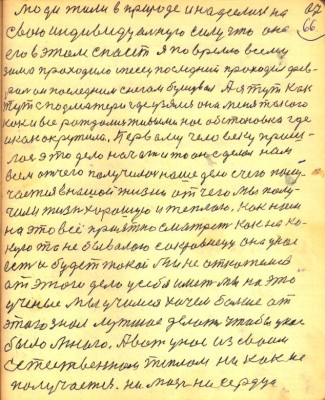 люди жили в природе и надеялись на
свою индивидуалную силу это она
его в этом спасет Я поверяю всему
зима проходило месец последний проходит фев-
рал он последним снегом бушевал А я тут как
тут с под матери где взялся она меня такого
как и все рождали живыми нас обстановка где
и как окрутила. Первому человеку приш-
лос это дело начати то он сделал нам
всем от чего получилос наше дело с чего полу-
чается в нашой жизни от чего мы полу-
чили жизн хорошую и теплою. Как нам
на это всё приятно смотрет как на ка-
кую то не бывалою сокровищу она у нас
есть и будет такой Мы не откажемся
от этого дело у себя имет мы на это
ученые мы учимся хочем болше от
этого знат лутшое делат чтобы у нас
было много. А вот у нас из своим
естественном теплом ни как не
получается. ни мозг ни сердце
66